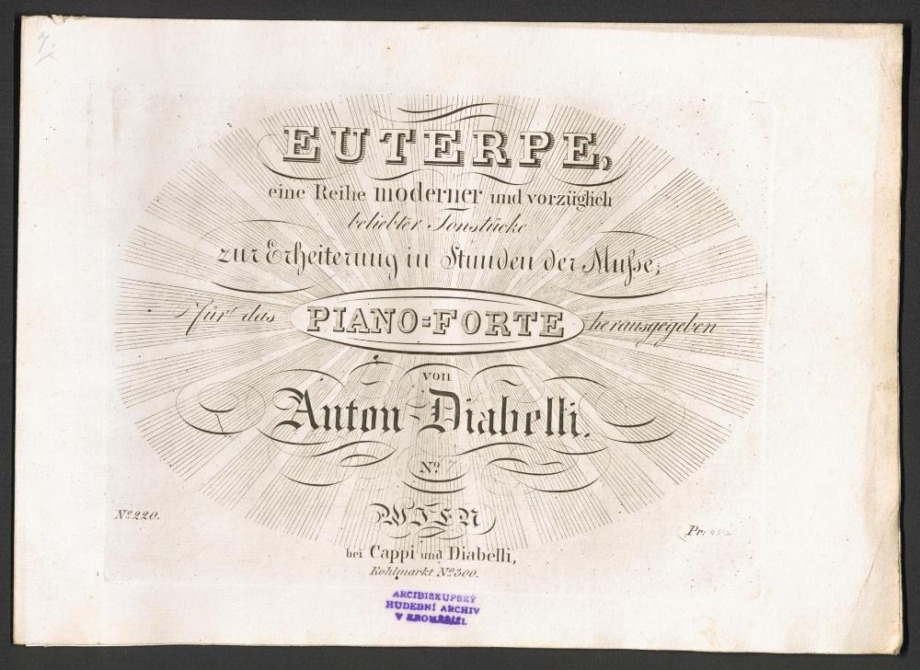 7.
EUTERPE,
eine Reihe moderner und vorzüglich
beliebter Tonstücke
zur Erheiterung in Stunden der Muſse;
für das PIANO=FORTE herausgegeben
von
Anton Diabelli.
No. 7
WIEN
No. 220.
Pr:
bei Cappi und Diabelli,
Kohlmarkt No. 300.
ARCIBISKUPSKÝ
HUDEBNÍ ARCHIV
V KROMĚŘÍŽI.